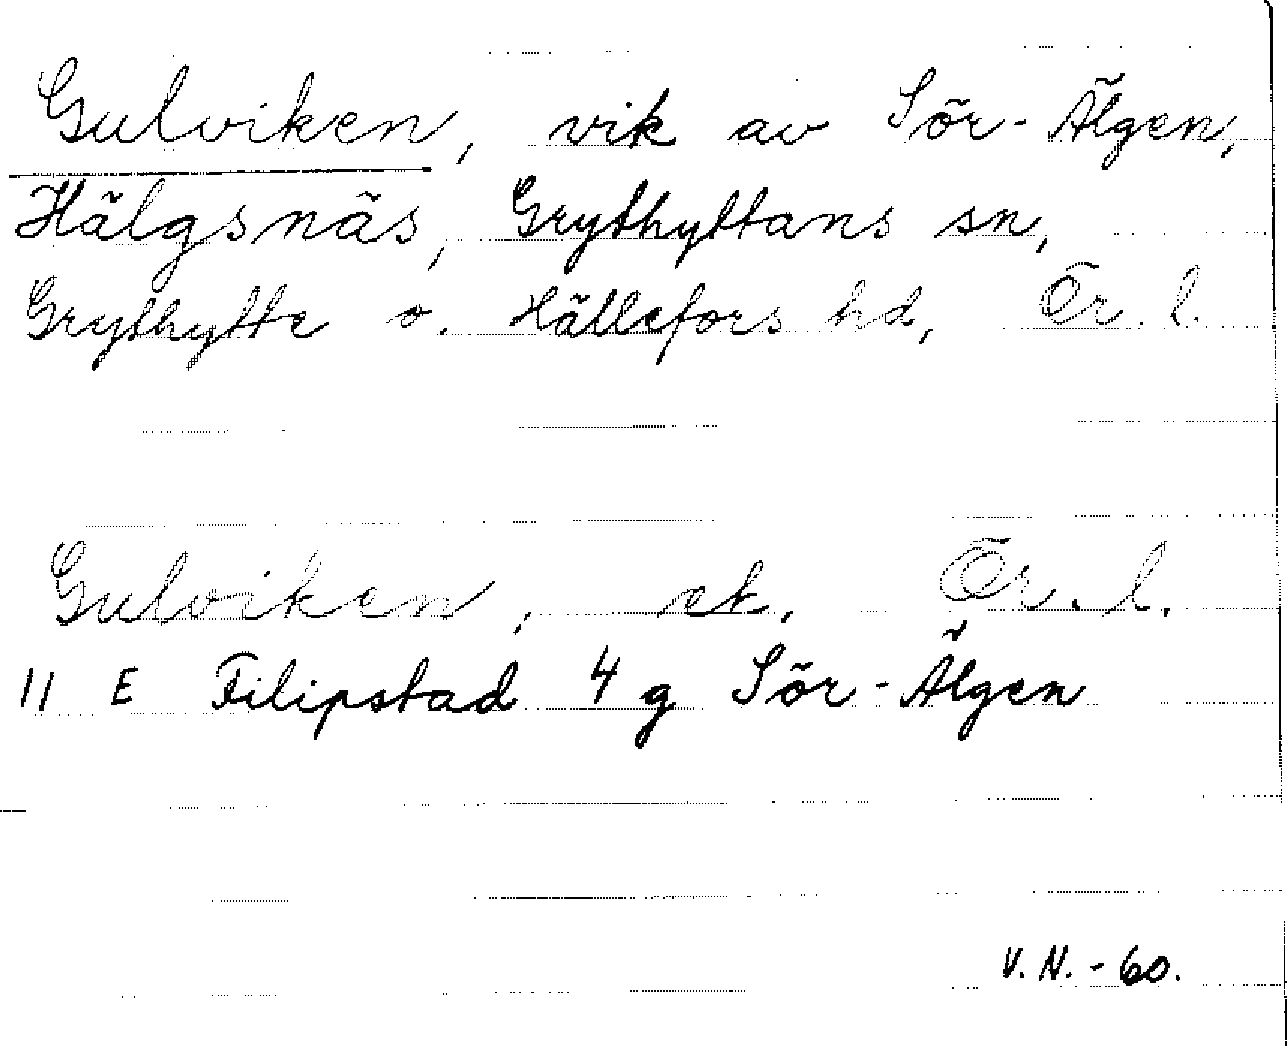 Gulviken, vik av Sör-Älgen,
Hälgsnäs, Grythyttans sn,
Grythytte o. Hällefors hd, Ör. l.
Gulviken, ek, Ör. l.
11 E Filipstad 4 g Sör-Älgen
V. N. - 60.